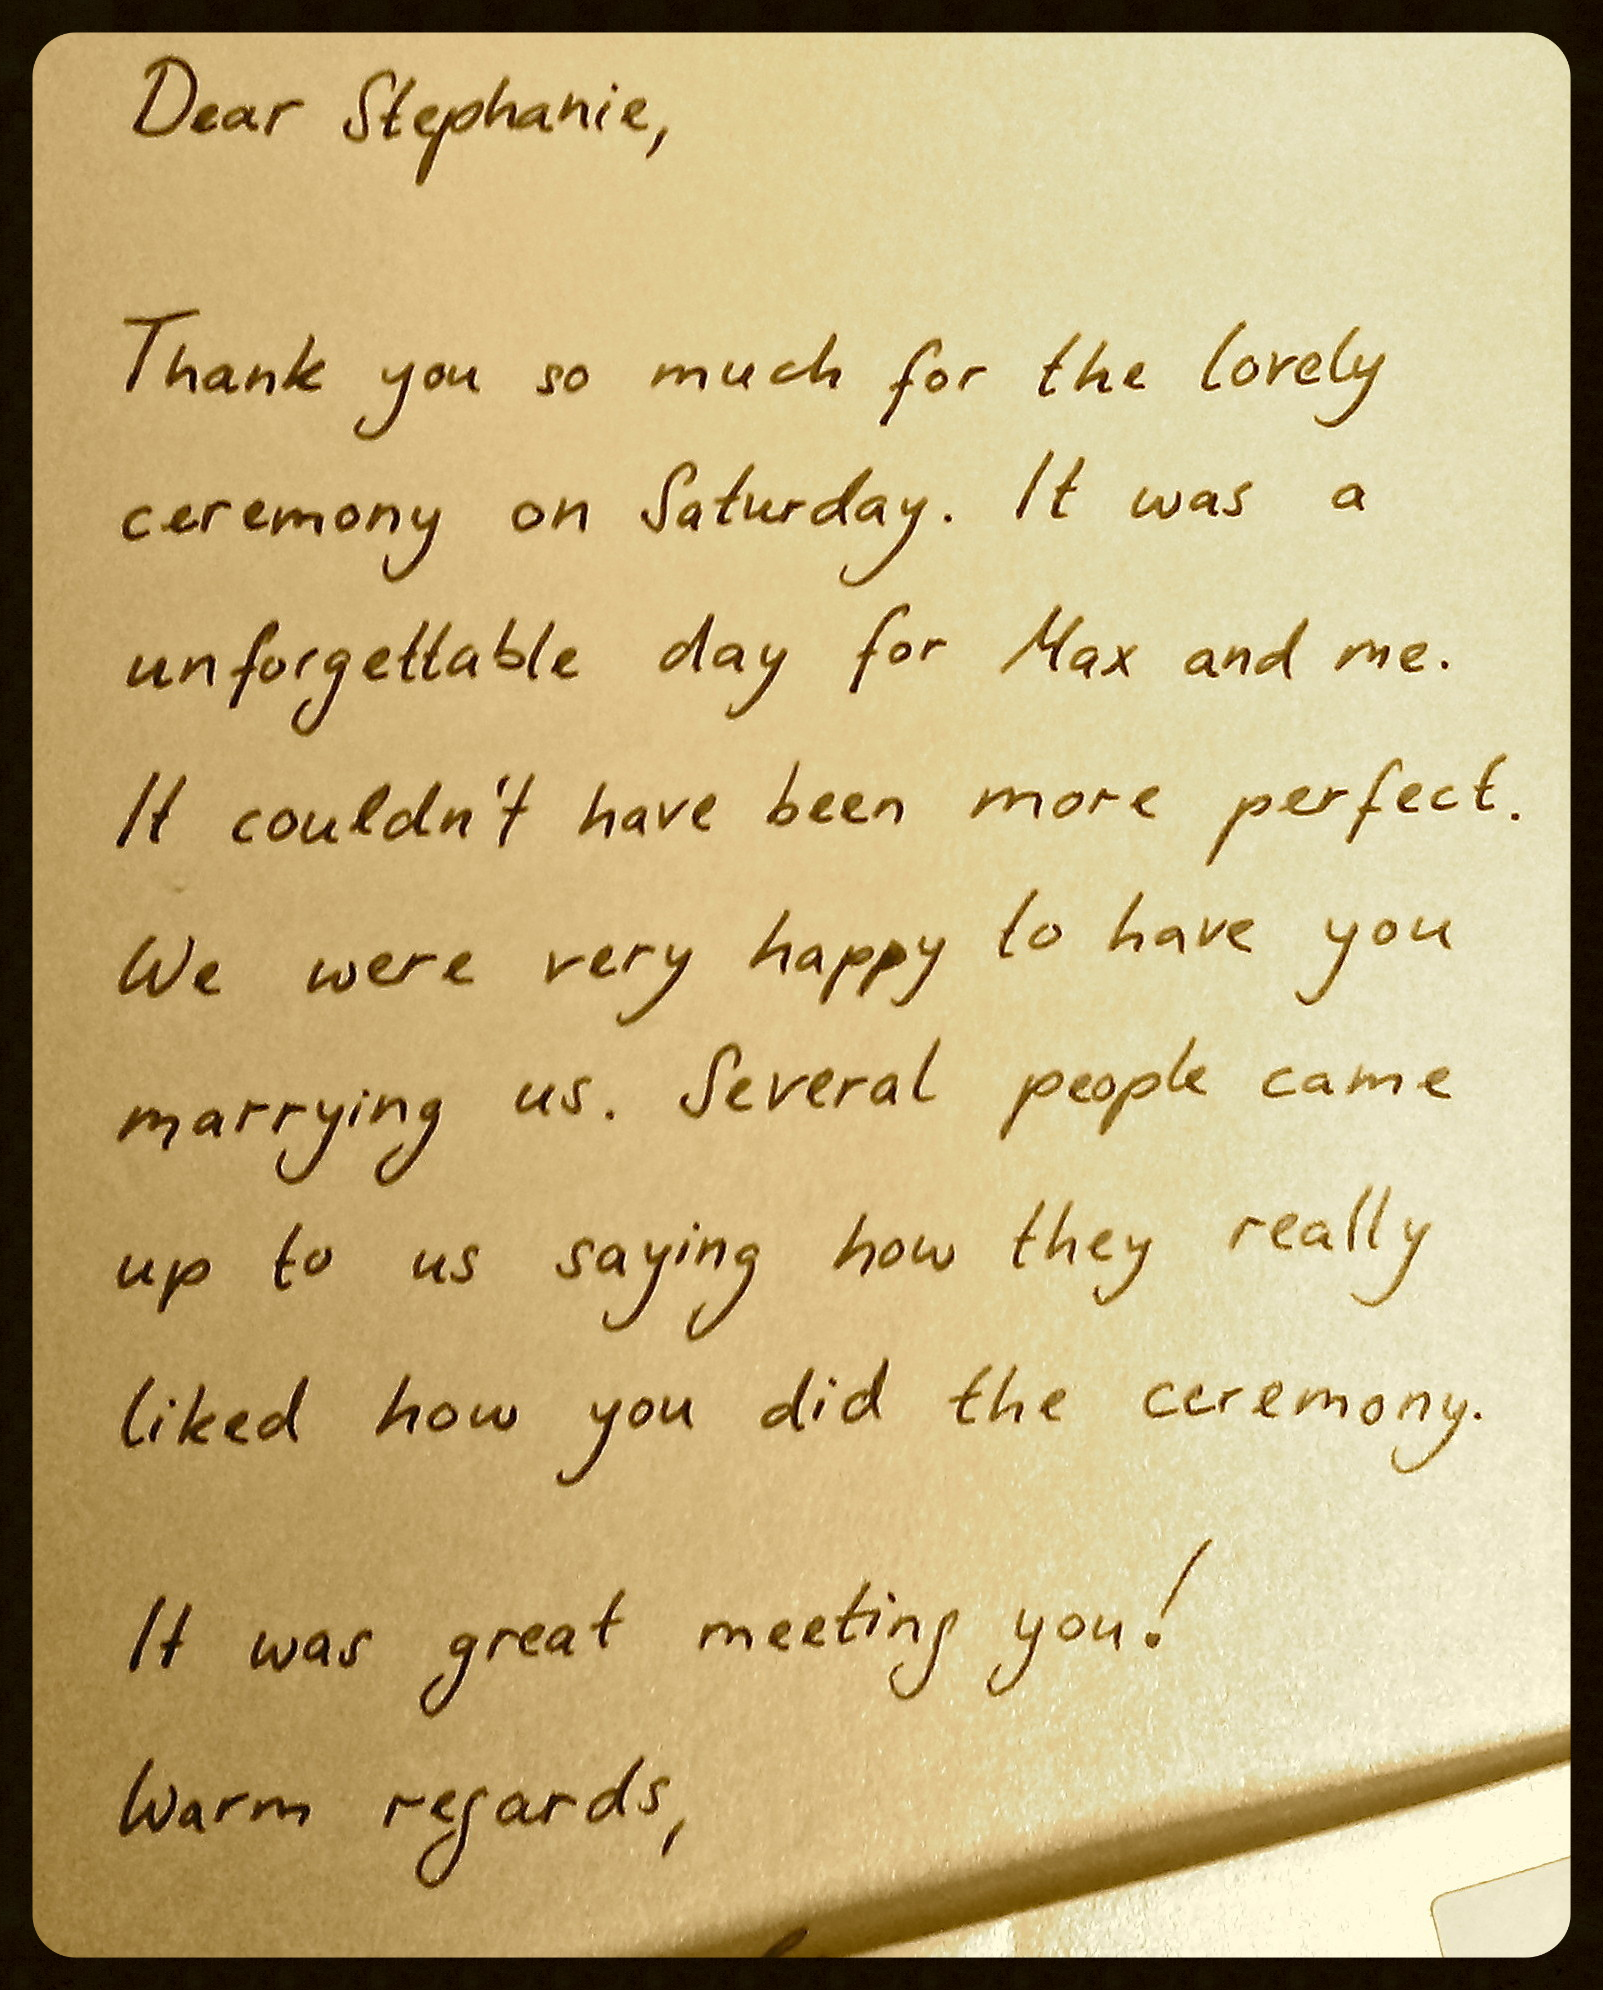 Dear Stephanie,
Thank you so much for the lovely
ceremony on Saturday. It was a
unforgettable day for Max and me.
It couldn't have been more perfect.
We were very happy to have you
marrying us. Several people came
up to us saying how they really
liked how you did the ceremony.
It was great meeting you!
Warm regards,